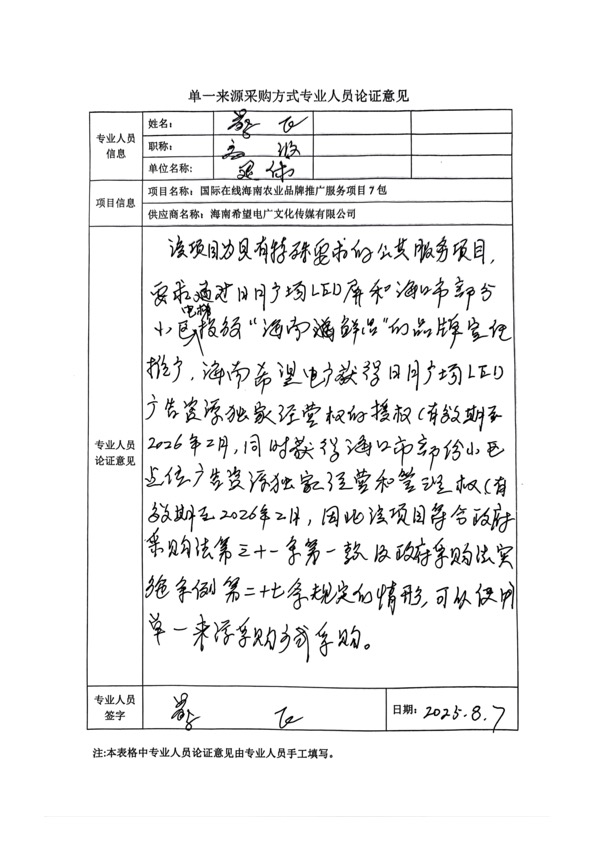 单一来源采购方式专业人员论证意见
专业人员信息
姓名:
职称:
单位名称: 退休
项目信息
项目名称: 国际在线海南农业品牌推广服务项目7包
供应商名称: 海南希望电广文化传媒有限公司
专业人员论证意见
该项目为具有特殊要求的公共服务项目,
要求通过日月广场LED屏和海口市部分
小区电梯投放“海南 鲜品”的品牌宣传
推广, 海南希望电广获得日月广场LED
广告资源独家经营权的授权(有效期至
2026年2月, 同时获得海口市部份小区
点位广告资源独家经营和管理权(有
效期至2026年2月, 因此该项目符合政府
采购法第三十一条第一款及政府采购法实
施条例第二十七条规定的情形, 可以使用
单一来源采购方式采购。
专业人员签字
日期: 2025.8.7
注:本表格中专业人员论证意见由专业人员手工填写。